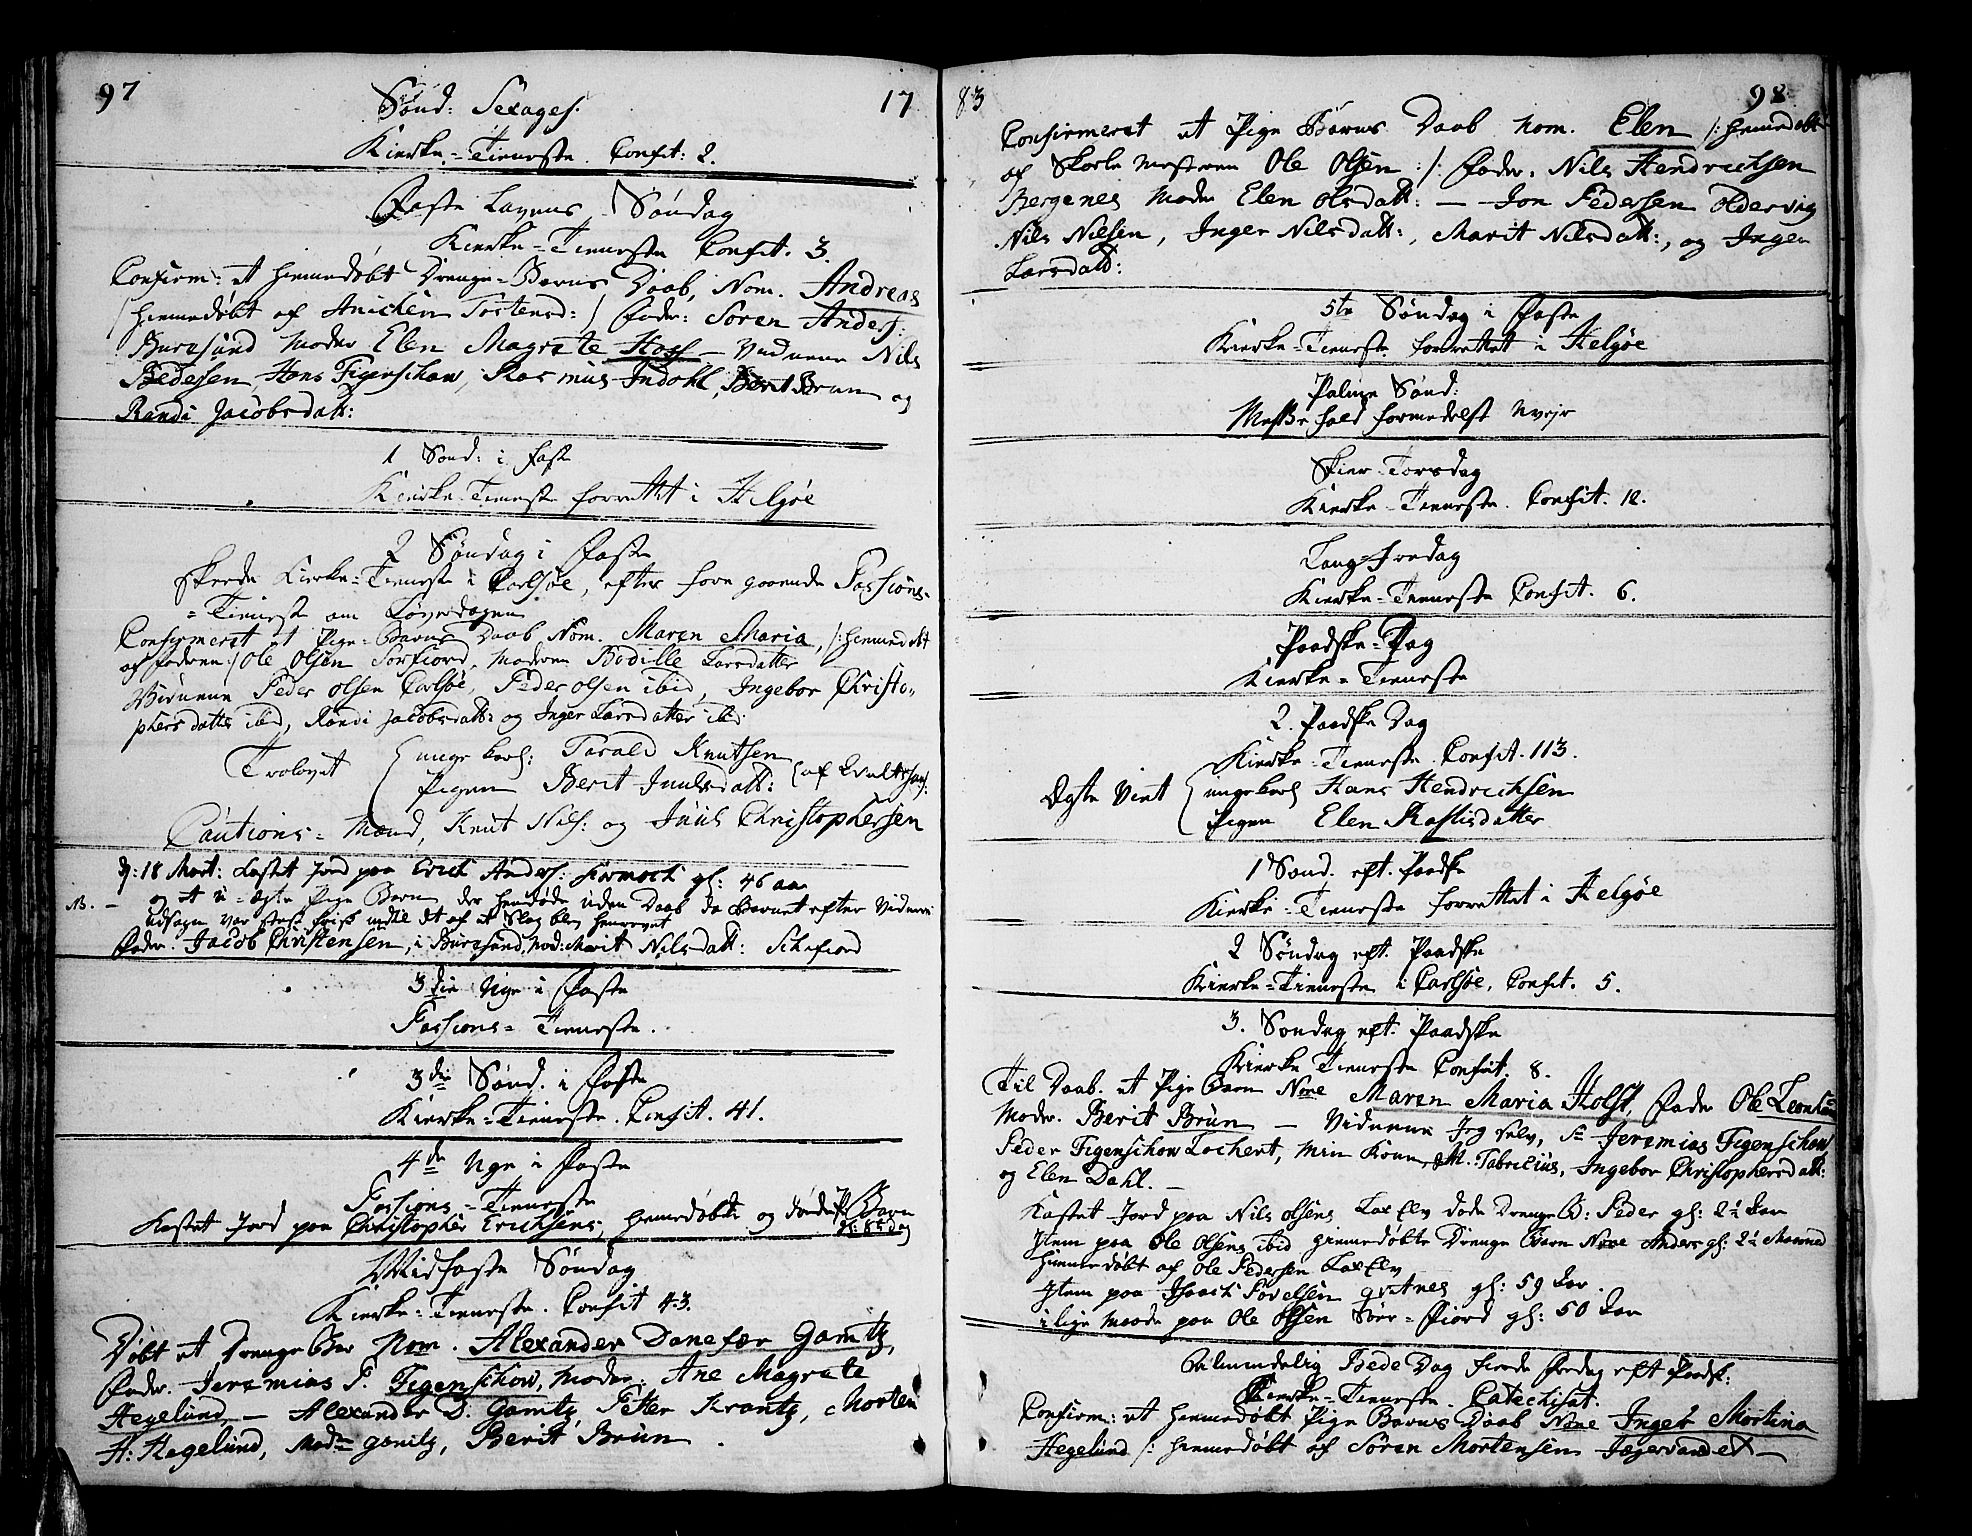 97
17
Sønd: Sexages.
Kierke-Tieneste. Confit: 2.
Faste Lavens Søndag
Kierke-Tieneste Confit. 3.
Confirm: et hiemedøbt Drenge-Barns Daab, Nom. Andreas
/: hiemedøbt af Anichen Tostensd: / Fader: Søren Anders:
Buresund Moder Elen Magrete Hoss - Vidnerne Nils
Pedersen, Hans Figenschow, Rasmus Indahl, Berit Brun og
Randi Jacobsdatt:
1 Sønd: i Faste
Kierke-Tieneste forrettet i Helgøe
2 Søndag i Faste
skeede Kierke-Tieneste i Carlsøe, efter foregaaende Passions-
=Tieneste om Løverdagen
Confirmeret et Pige-Barns Daab Nom. Maren Maria, /: hiemedøbt
af faderen :/ Ole Olsen Sørfiord, Moderen Bodille Larsdatter
Vidnerne Peder Olsen Carlsøe, Peder Olsen ibid, Ingebor Christo-
phersdatter ibid, Randi Jacobsdatt: og Inger Larsdatter ibid:
Trolovet { unge karl: Tarald Knutsen
Pigen Berit Juulsdatt: } af
Cautions-Mænd, Knut Nils: og Juul Christophersen
d: 18 Mart: Kastet Jord paa Erich Anders: gl: 46 aar
NB. - og et u-ægte Pige Barn, der hendøde uden Daab da Barnet efter Vidners
udsagn var frisk indtil det af et Slag blev henrevet
Fader: Jacob Christensen, i Buresund, Mod: Marit Nilsdatt:
3die Uge i Faste
Passions-Tieneste.
3die Sønd. i Faste
Kierke-Tieneste. Confit. 41.
4de Uge i Faste
Passions-Tieneste
Kastet Jord paa Christopher Erichsens, hiemedøbte og døde P. Barn
Midfaste Søndag
Kierke-Tieneste. Confit 43.
Døbt et Drenge Bar Nom. Alexander Danefær Gamtz,
Fader. Jeremias P. Figenschow, Moder: Ane Magrete
Hegelund, - Alexander D. Gamtz, Peter Krantz, Morten
H: Hegelund, Madme Gamtz, Berit Brun.
83
98
Confirmeret et Pige Barns Daab Nom. Elen /: hiemedøbt
af Skole Mesteren Ole Olsen :/ Fader: Nils Hendrichsen
Bergenes Moder Elen Olsdatt: - Jon Pedersen Oldervig
Nils Nilsen, Inger Nilsdatt:, Marit Nilsdatt:, og Inger
Larsdatt:
5te Søndag i Faste
Kierke-Tieneste forrettet i Helgøe
Palme Sønd:
Messe fald formedelst Uvejr
Skier-Torsdag
Kierke-Tieneste. Confit. 12.
Lang-Fredag
Kierke-Tieneste Confit. 6.
Paaske-Dag
Kierke-Tieneste
2. Paaske Dag
Kierke-Tieneste. Confit. 113.
Ægte Viet { ungekarl Hans Hendrichsen
Pigen Elen Rasmusdatter
1 Sønd. eft. Paaske
Kierke-Tieneste forrettet i Helgøe
2 Søndag eft. Paaske
Kierke-Tieneste i Carlsøe, Confit. 5.
3. Søndag eft. Paaske
Kierke Tieneste Confit. 8.
Til Daab et Pige Barn Nome Maren Maria Holst, Fader Ole
Moder. Berit Brun - Vidnerne Jeg selv, Sr Jeremias Figenschow
Peder Figenschow Lockert, Min Kone, M. Fabricius, Ingebor Christophersdatt:
og Elen Dahl. -
Kastet Jord paa Nils Olsens døde Drenge B: Peder gl: 2½ Aar
Item paa Ole Olsens ibid hiemedøbte Drenge Barn Nome Anders gl: 2½ Maaned
hiemedøbt af Ole Pedersen
Item paa Isach Povelsen Grøtnes gl: 59 Aar.
i lige Maade paa Ole Olsen Sørr-Fiord gl: 50 Aar
Almindelig Bede Dag fierde Fredag eft Paask:
Kierke-Tieneste. Catechisat.
Confirm: et hiemedøbt Pige Barns Daab Nome Ingeb Mortina
Hegelund /: hiemedøbt af Søren Mortensen Jægervandet -